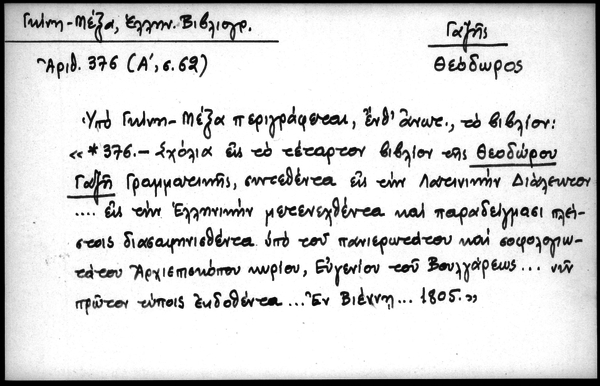 Γκίνη-Μέξα, Ἑλλην. Βιβλιογρ.
Γαζῆς
Ἀριθ. 376 (Α', σ. 62)
Θεόδωρος
Ὑπὸ Γκίνη-Μέξα περιγράφεται, ἔνθ' ἀνωτ., τὸ βιβλίον:
«*376.- Σχόλια εἰς τὸ τέταρτον βιβλίον τῆς Θεοδώρου
Γαζῆ Γραμματικῆς, συντεθέντα εἰς τὴν Λατινικὴν Διάλεκτον
.... εἰς τὴν Ἑλληνικὴν μετενεχθέντα καὶ παραδείγμασι πλεί-
στοις διασαφηνισθέντα ὑπὸ τοῦ πανιερωτάτου καὶ σοφολογιω-
τάτου Ἀρχιεπισκόπου κυρίου, Εὐγενίου τοῦ Βουλγάρεως... νῦν
πρῶτον τύποις ἐκδοθέντα... Ἐν Βιέννῃ... 1805.»